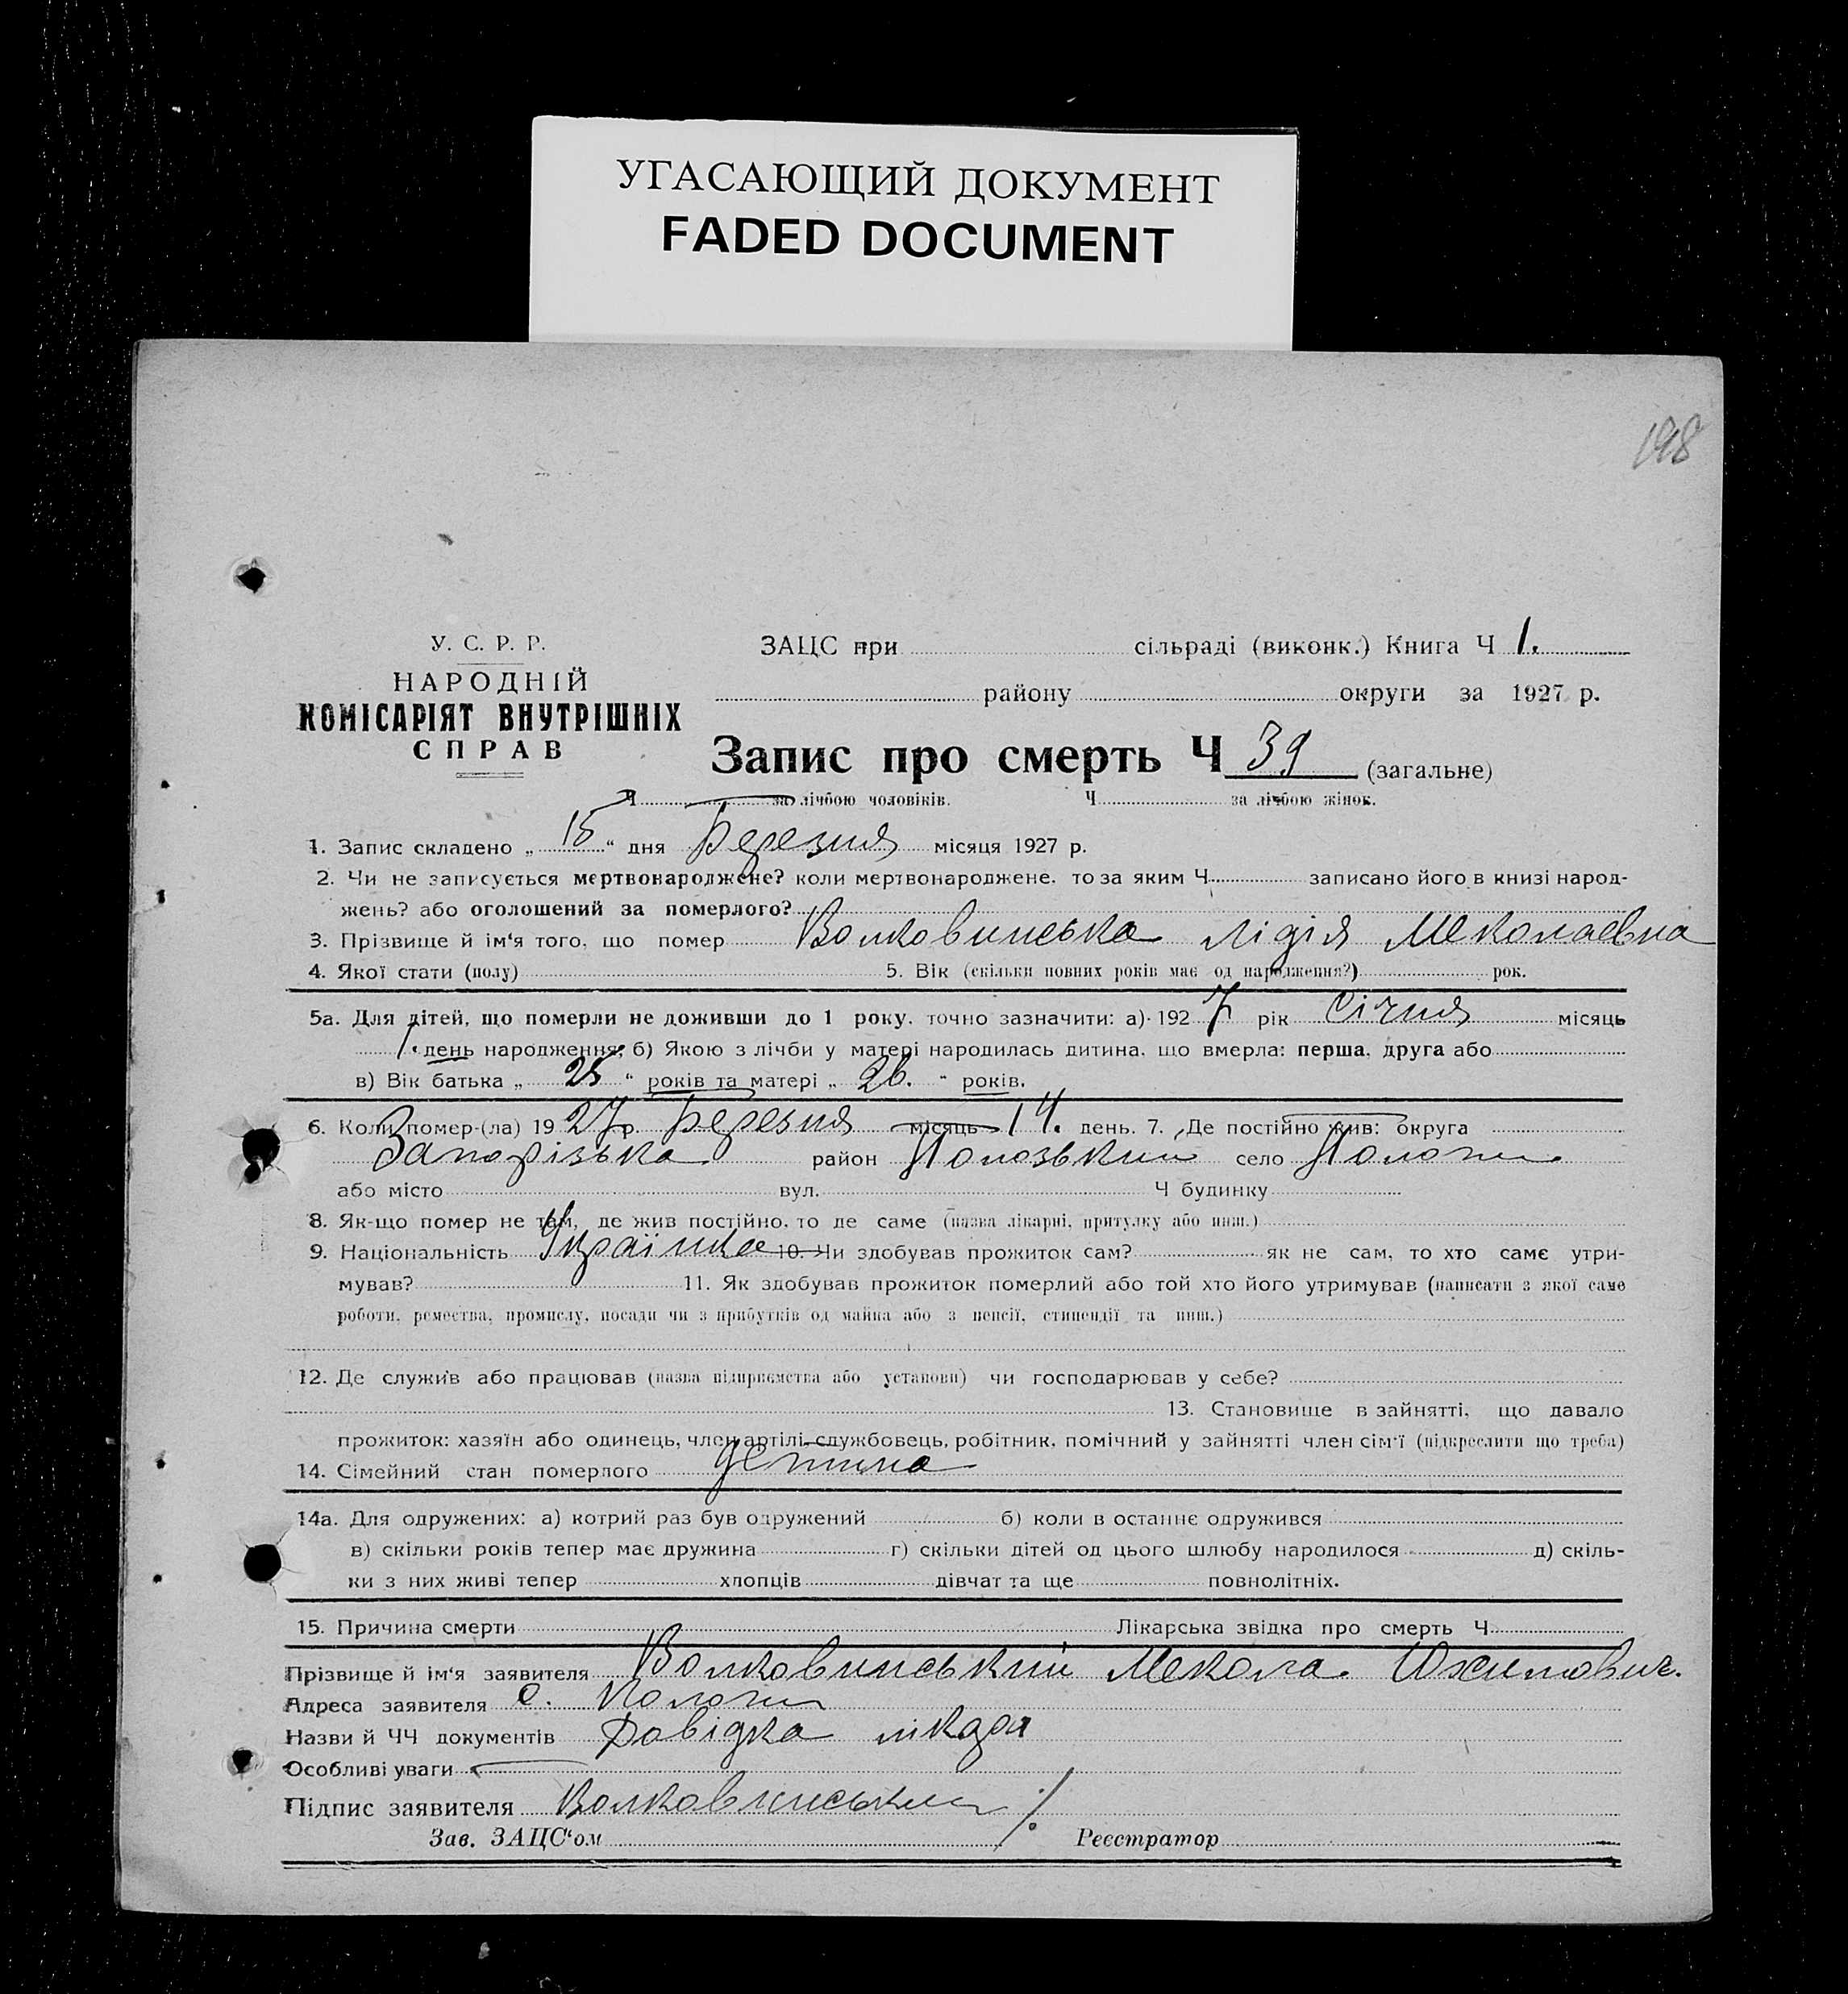 УГАСАЮЩИЙ ДОКУМЕНТ
FADED DOCUMENT
198
У. С. Р. Р.
НАРОДНІЙ
КОМІСАРІЯТ ВНУТРІШНІХ
СПРАВ
ЗАЦС при сільраді (виконк.) Книга Ч 1.
району округи за 1927 р.
Запис про смерть Ч 39 (загальне)
Ч за лічбою чоловіків. Ч за лічбою жінок.
1. Запис складено „ 15 “ дня Березня місяця 1927 р.
2. Чи не записується мертвонароджене? коли мертвонароджене. то за яким Ч записано його в книзі народ-
жень? або оголошений за померлого?
3. Прізвище й ім‘я того, що помер Волковинська Лідія Меколаєвна
4. Якої стати (полу) 5. Вік (скільки повних років має од народження?) рок.
5а. Для дітей, що померли не доживши до 1 року. точно зазначити: а) 192 7 рік Січня місяць
1 день народження; б) Якою з лічби у матері народилась дитина, що вмерла: перша, друга або
в) Вік батька „ 25 “ років та матері „ 26. “ років.
6. Коли помер-(ла) 19 27 р. Березня місяць 14. день. 7. Де постійно жив: округа
Запорізька район Полозький село Пологи
або місто вул. Ч будинку
8. Як-що помер не там, де жив постійно, то де саме (назва лікарні, притулку або инш.)
9. Національність Українка 10. Чи здобував прожиток сам? як не сам, то хто саме утри-
мував? 11. Як здобував прожиток померлий або той хто його утримував (написати з якої саме
роботи, ремества, промислу, посади чи з прибутків од майна або з пенсії, стипендії та инш.)
12. Де служив або працював (назва підприємства або установи) чи господарював у себе?
13. Становище в зайнятті, що давало
прожиток: хазяїн або одинець, член артілі, службовець, робітник, помічний у зайнятті член сім‘ї (підкреслити що треба)
14. Сімейний стан померлого детина
14а. Для одружених: а) котрий раз був одружений б) коли в останнє одружився
в) скільки років тепер має дружина г) скільки дітей од цього шлюбу народилося д) скіль-
ки з них живі тепер хлопців дівчат та ще повнолітніх.
15. Причина смерти Лікарська звідка про смерть Ч
Прізвище й ім‘я заявителя Волковинський Мекола
Адреса заявителя с. Пологи
Назви й ЧЧ документів Довідка лікаря
Особливі уваги
Підпис заявителя Волковинський
Зав. ЗАЦС‘ом Реєстратор